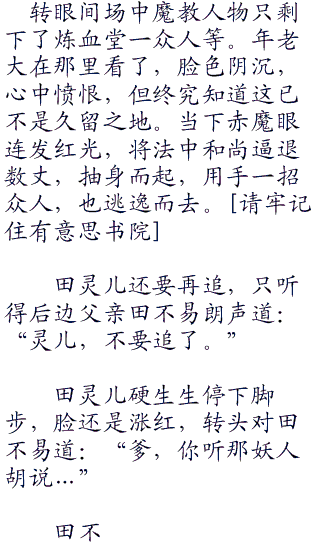 转眼间场中魔教人物只剩
下了炼血堂一众人等。年老
大在那里看了，脸色阴沉，
心中愤恨，但终究知道这已
不是久留之地。当下赤魔眼
连发红光，将法中和尚逼退
数丈，抽身而起，用手一招
众人，也逃逸而去。[请牢记
住有意思书院]
田灵儿还要再追，只听
得后边父亲田不易朗声道：
“灵儿，不要追了。”
田灵儿硬生生停下脚
步，脸还是涨红，转头对田
不易道：“爹，你听那妖人
胡说…”
田不